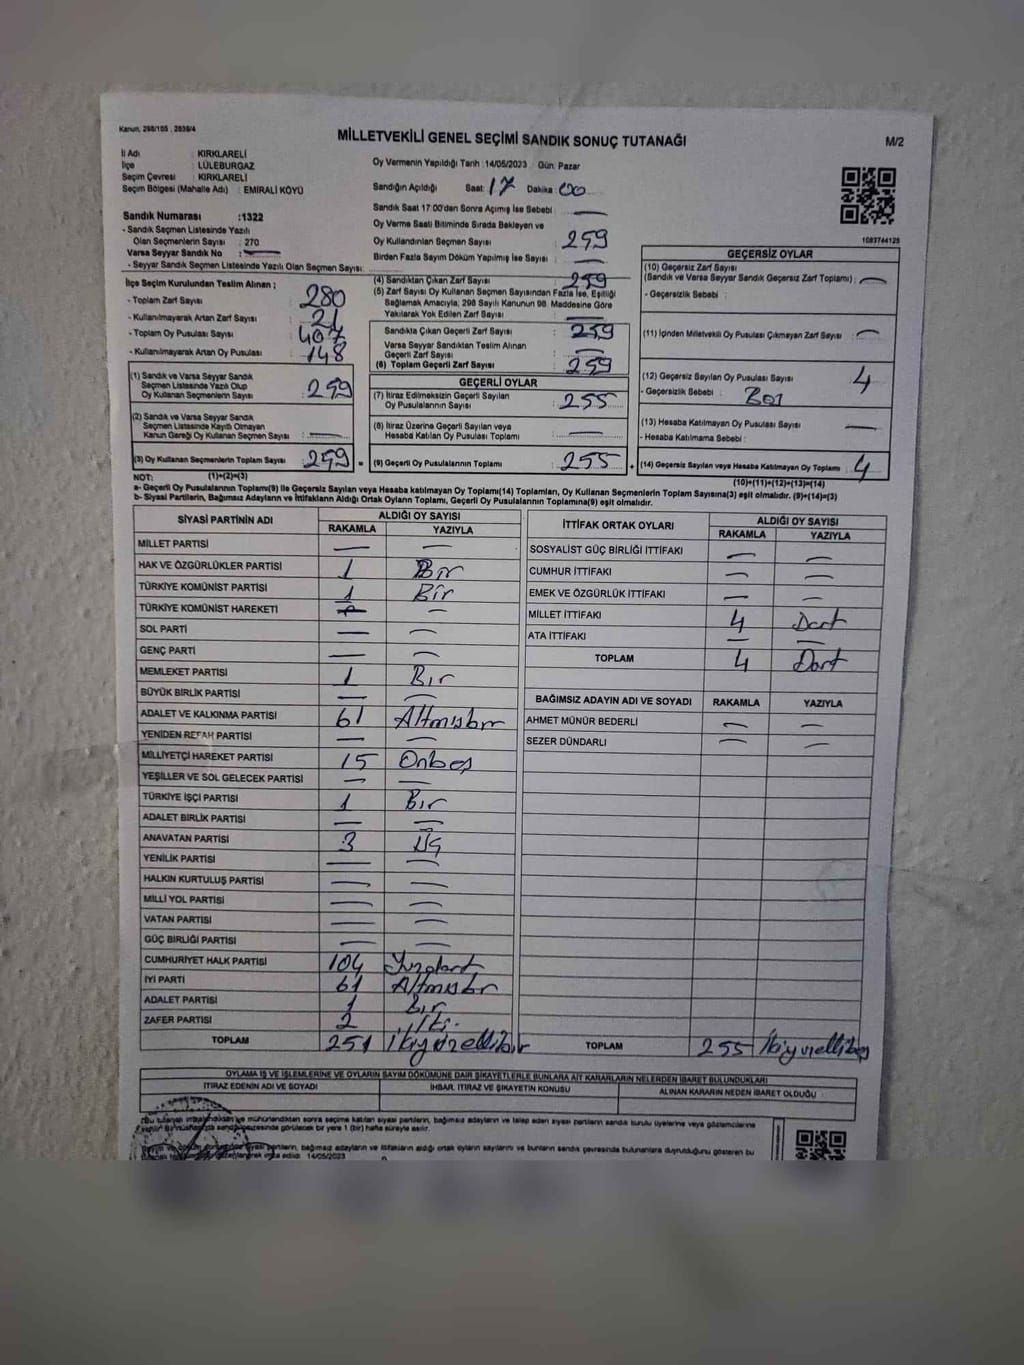 Kanun, 298/105 , 2839/4
MİLLETVEKİLİ GENEL SEÇİMİ SANDIK SONUÇ TUTANAĞI
M/2
İl Adı : KIRKLARELİ
İlçe : LÜLEBURGAZ
Seçim Çevresi : KIRKLARELİ
Seçim Bölgesi (Mahalle Adı) : EMİRALİ KÖYÜ
Sandık Numarası :1322
- Sandık Seçmen Listesinde Yazılı
Olan Seçmenlerin Sayısı : 270
Varsa Seyyar Sandık No : —
- Seyyar Sandık Seçmen Listesinde Yazılı Olan Seçmen Sayısı
Oy Vermenin Yapıldığı Tarih :14/05/2023 Gün: Pazar
Sandığın Açıldığı Saat: 17 Dakika : 00
Sandık Saat 17:00'dan Sonra Açmış İse Sebebi : —
Oy Verme Saati Bitiminde Sırada Bekleyen ve
Oy Kullandırılan Seçmen Sayısı : 259
Birden Fazla Sayım Döküm Yapılmış İse Sayısı : —
1083744125
İlçe Seçim Kurulundan Teslim Alınan ;
- Toplam Zarf Sayısı : 280
- Kullanılmayarak Artan Zarf Sayısı : 21
- Toplam Oy Pusulası Sayısı : 407
- Kullanılmayarak Artan Oy Pusulası : 148
(1) Sandık ve Varsa Seyyar Sandık
Seçmen Listesinde Yazılı Olup
Oy Kullanan Seçmenlerin Sayısı : 259
(2) Sandık ve Varsa Seyyar Sandık
Seçmen Listesinde Kayıtlı Olmayan
Kanun Gereği Oy Kullanan Seçmen Sayısı : —
(3) Oy Kullanan Seçmenlerin Toplam Sayısı : 259
(1)+(2)=(3)
(4) Sandıktan Çıkan Zarf Sayısı : 259
(5) Zarf Sayısı Oy Kullanan Seçmen Sayısından Fazla İse, Eşitliği
Sağlamak Amacıyla; 298 Sayılı Kanunun 98. Maddesine Göre
Yakılarak Yok Edilen Zarf Sayısı : —
Sandıkta Çıkan Geçerli Zarf Sayısı : 259
Varsa Seyyar Sandıktan Teslim Alınan
Geçerli Zarf Sayısı : —
(6) Toplam Geçerli Zarf Sayısı : 259
GEÇERLİ OYLAR
(7) İtiraz Edilmeksizin Geçerli Sayılan
Oy Pusulalarının Sayısı : 255
(8) İtiraz Üzerine Geçerli Sayılan veya
Hesaba Katılan Oy Pusulası Toplamı : —
(9) Geçerli Oy Pusulalarının Toplamı : 255
GEÇERSİZ OYLAR
(10) Geçersiz Zarf Sayısı
(Sandık ve Varsa Seyyar Sandık Geçersiz Zarf Toplamı) : —
- Geçersizlik Sebebi :
(11) İçinden Milletvekili Oy Pusulası Çıkmayan Zarf Sayısı : —
(12) Geçersiz Sayılan Oy Pusulası Sayısı : 4
- Geçersizlik Sebebi : Boş
(13) Hesaba Katılmayan Oy Pusulası Sayısı : —
- Hesaba Katılmama Sebebi :
(14) Geçersiz Sayılan veya Hesaba Katılmayan Oy Toplamı : 4
(10)+(11)+(12)+(13)=(14)
NOT:
a- Geçerli Oy Pusulalarının Toplamı(9) ile Geçersiz Sayılan veya Hesaba katılmayan Oy Toplamı(14) Toplamları, Oy Kullanan Seçmenlerin Toplam Sayısına(3) eşit olmalıdır. (9)+(14)=(3)
b- Siyasi Partilerin, Bağımsız Adayların ve İttifakların Aldığı Ortak Oyların Toplamı, Geçerli Oy Pusulalarının Toplamına(9) eşit olmalıdır.
SİYASİ PARTİNİN ADI ALDIĞI OY SAYISI
RAKAMLA YAZIYLA
MİLLET PARTİSİ — —
HAK VE ÖZGÜRLÜKLER PARTİSİ 1 Bir
TÜRKİYE KOMÜNİST PARTİSİ 1 Bir
TÜRKİYE KOMÜNİST HAREKETİ — —
SOL PARTİ — —
GENÇ PARTİ — —
MEMLEKET PARTİSİ 1 Bır
BÜYÜK BİRLİK PARTİSİ — —
ADALET VE KALKINMA PARTİSİ 61 Altmışbır
YENİDEN REFAH PARTİSİ — —
MİLLİYETÇİ HAREKET PARTİSİ 15 Onbeş
YEŞİLLER VE SOL GELECEK PARTİSİ — —
TÜRKİYE İŞÇİ PARTİSİ 1 Bır
ADALET BİRLİK PARTİSİ — —
ANAVATAN PARTİSİ 3 Üç
YENİLİK PARTİSİ — —
HALKIN KURTULUŞ PARTİSİ — —
MİLLİ YOL PARTİSİ — —
VATAN PARTİSİ — —
GÜÇ BİRLİĞİ PARTİSİ — —
CUMHURİYET HALK PARTİSİ 104 Yüzdört
İYİ PARTİ 61 Altmışbır
ADALET PARTİSİ 1 Bır
ZAFER PARTİSİ 2 İki
TOPLAM 251 İkiyüzellibir
İTTİFAK ORTAK OYLARI ALDIĞI OY SAYISI
RAKAMLA YAZIYLA
SOSYALİST GÜÇ BİRLİĞİ İTTİFAKI — —
CUMHUR İTTİFAKI — —
EMEK VE ÖZGÜRLÜK İTTİFAKI — —
MİLLET İTTİFAKI 4 Dört
ATA İTTİFAKI — —
TOPLAM 4 Dört
BAĞIMSIZ ADAYIN ADI VE SOYADI RAKAMLA YAZIYLA
AHMET MÜNÜR BEDERLİ — —
SEZER DÜNDARLI — —
TOPLAM 255 İkiyüzellibeş
OYLAMA İŞ VE İŞLEMLERİNE VE OYLARIN SAYIM DÖKÜMÜNE DAİR ŞİKAYETLERLE BUNLARA AİT KARARLARIN NELERDEN İBARET BULUNDUKLARI
İTİRAZ EDENİN ADI VE SOYADI İHBAR, İTİRAZ VE ŞİKAYETİN KONUSU ALINAN KARARIN NEDEN İBARET OLDUĞU
mühürlendikten sonra seçime katılan siyasi partilerin, bağımsız adayların ve talep eden siyasi partilerin sandık kurulu üyelerine veya gözlemcilerine
görülecek bir yere 1 (bir) hafta süreyle asılır.
partilerin, bağımsız adayların ve ittifakların aldığı ortak oyların sayılarını ve bunların sandık çevresinde bulunanlara duyrutduğunu gösteren bu
14/05/2023